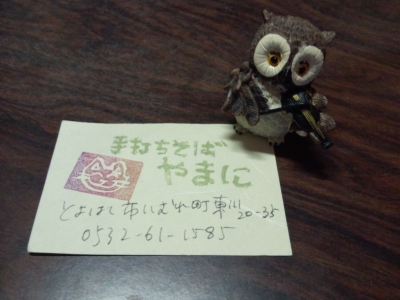 手打ちそば
やまに
とよはし市いむれ町東川20-35
0532-61-1585